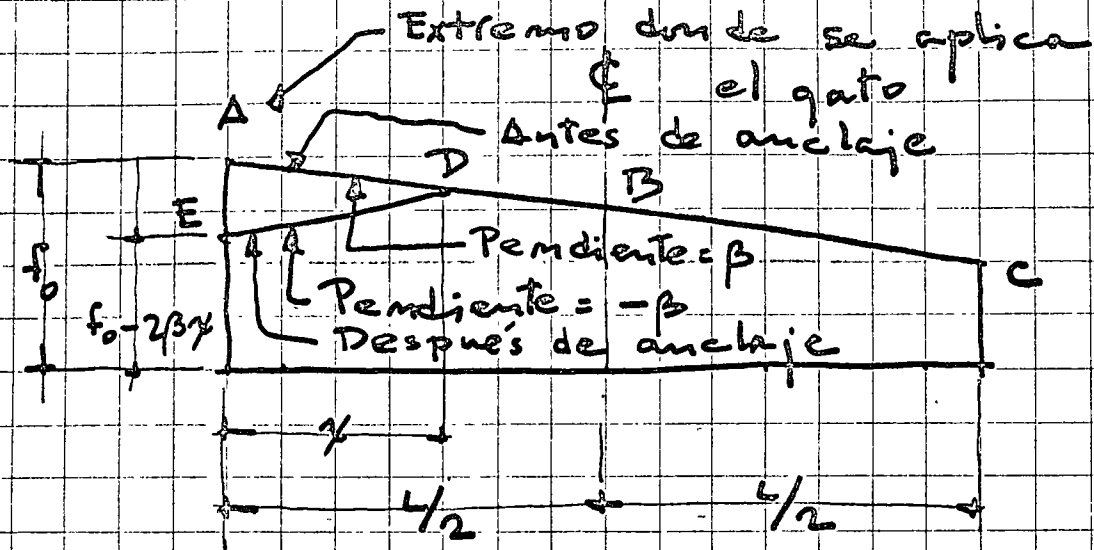 Extremo donde se aplica
℄ el gato
A
Antes de anclaje
D
B
E
Pendiente = β
C
f₀
Pendiente = -β
f₀ - 2βx
Después de anclaje
x
L/2
L/2